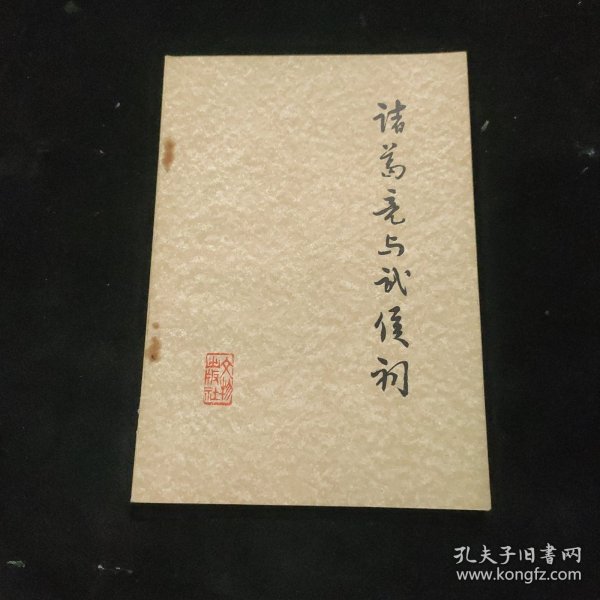 诸葛亮与武侯祠
文物出版社
孔夫子旧書网
www.kongfz.com